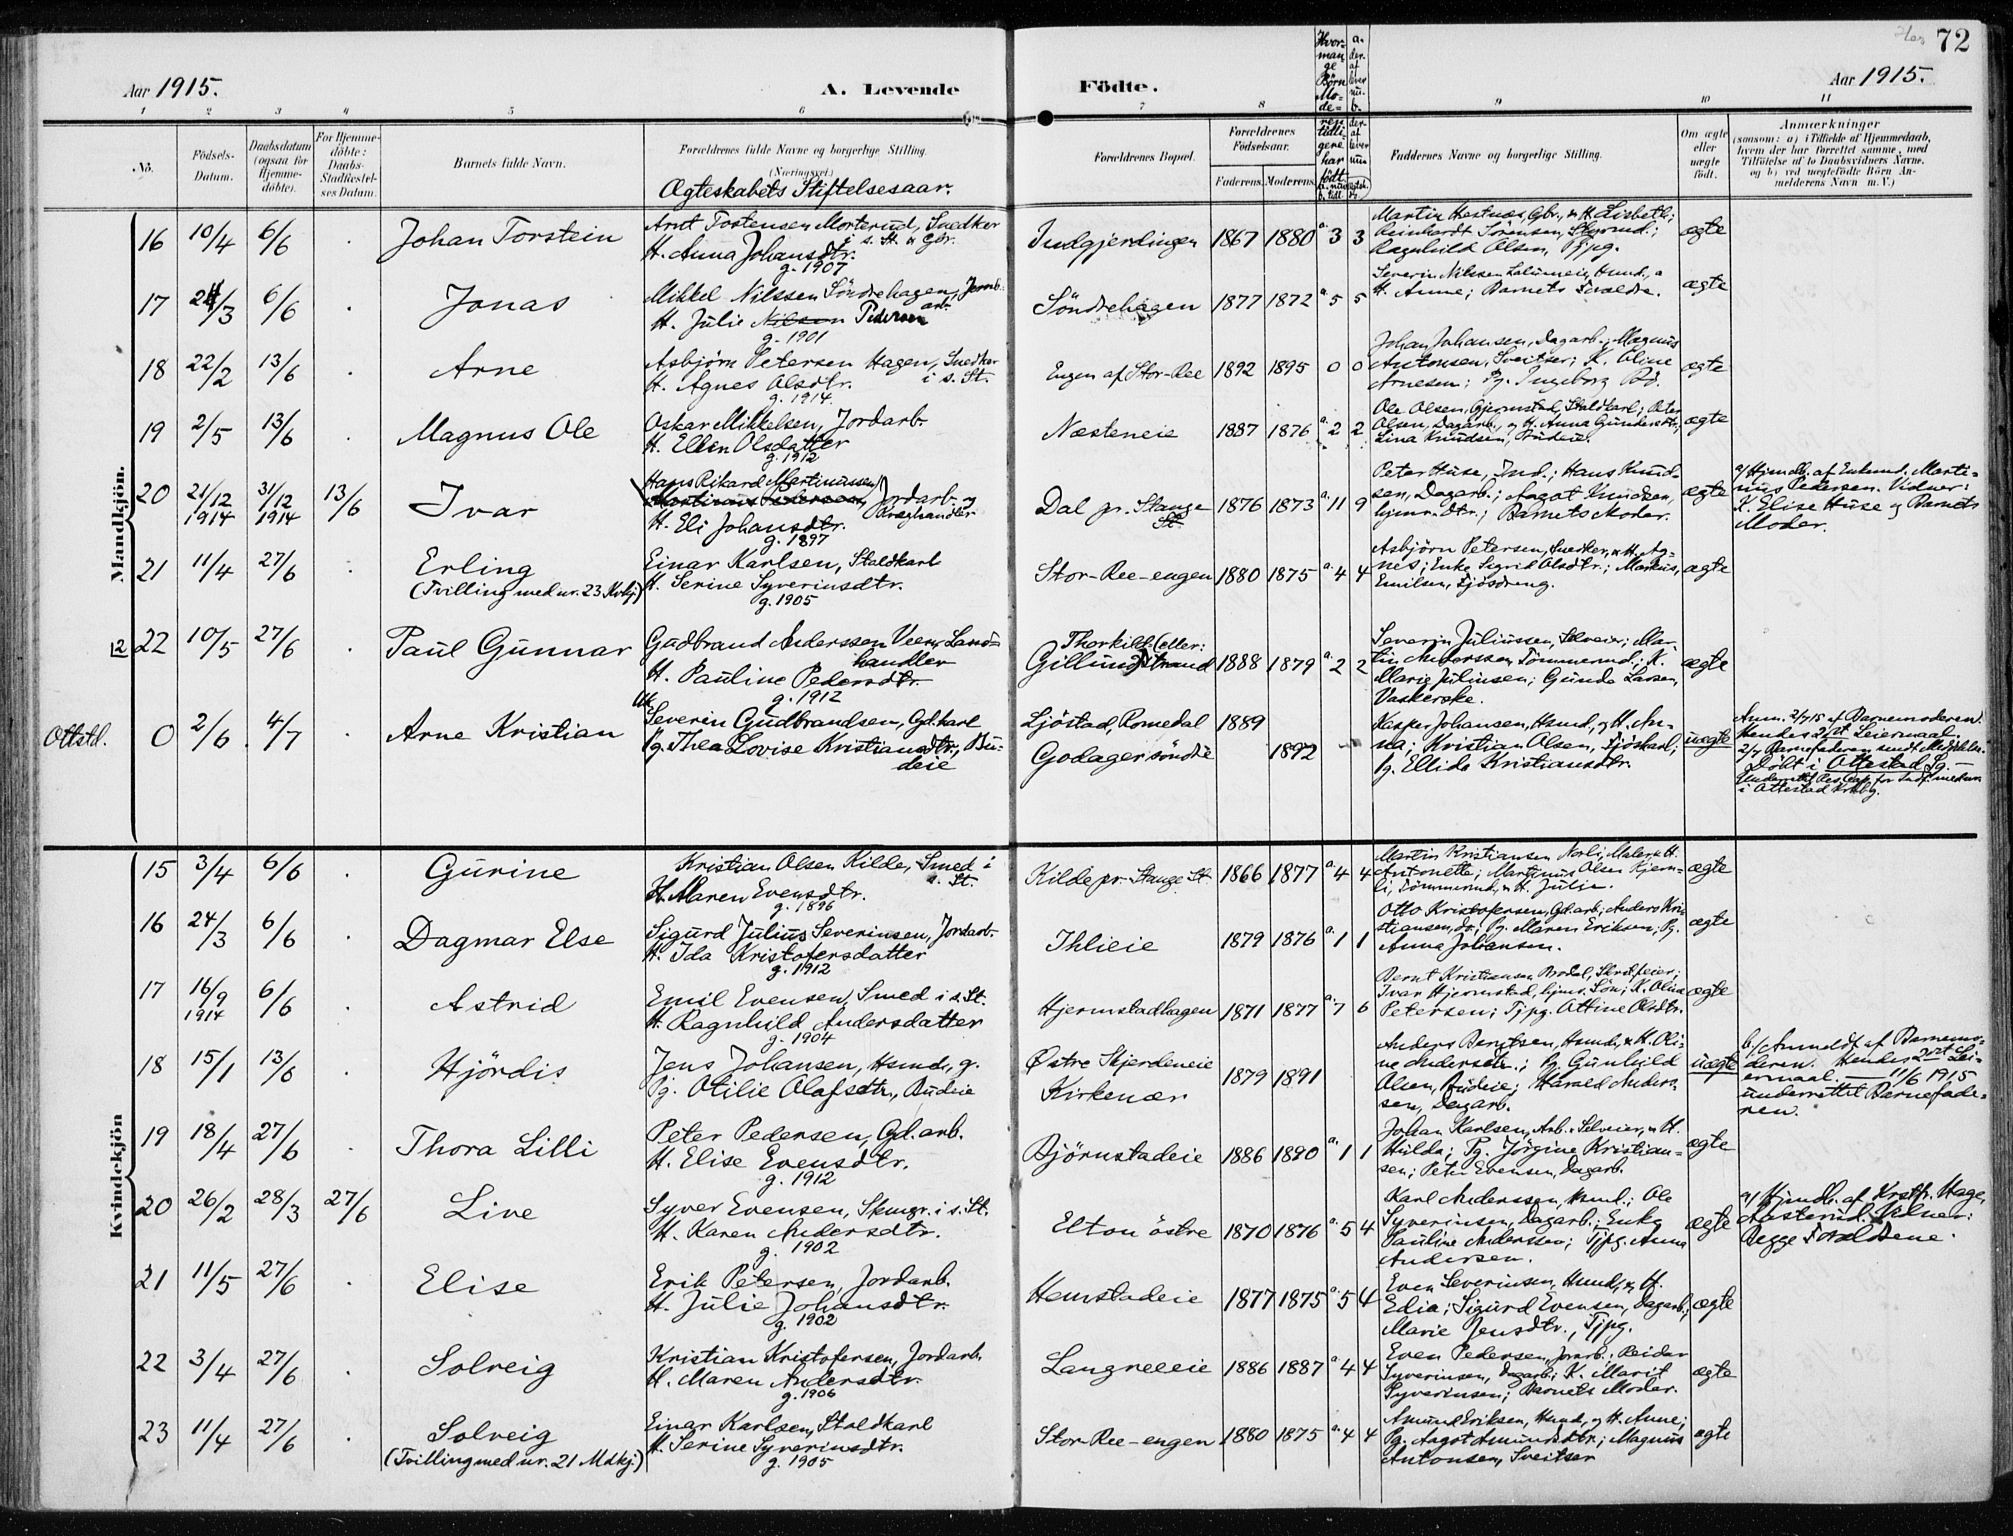 72
Aar 1915.
A. Levende
Födte.
Aar 1915.
1 2 3 4 5 6 7 8 9 10 11
No.
Födsels-Datum.
Daabsdatum (ogsaa for Hjemme-döbte).
For Hjemme-döbte: Daabs-Stadfæstel-ses Datum.
Barnets fulde Navn.
Forældrenes fulde Navne og borgerlige Stilling.
(Næringsvei.)
Ægteskabets Stiftelsesaar.
Forældrenes Bopæl.
Forældrenes Födselsaar.
Faderens. Moderens.
Faddernes Navne og borgerlige Stilling.
Om ægte eller uægte födt.
Anmærkninger
(saasom: a) i Tilfælde af Hjemmedaab, hvem der har forrettet samme, med Tilföielse af to Daabsvidners Navne, og b) ved uegtefödte Börn Anmelderens Navn m. V.)
Mandkjön.
16 10/4 6/6 Johan Torstein
Arnt Tostensen Morterud, Snedker i s. St. & Gbr.
H. Anna Johansdtr.
g. 1907
Indgjerdingen 1867 1880 a. 3 3
Martin Hestnæs, Gbr., & H. Lisbeth;
Reinhardt Sörensen,
Ragnhild Olsen, Tjpg.
ægte
17 24/3 6/6 Jonas
Mikkel Nilssen Söndrehagen, Jernb. arb.
H. Julie Nilsen Pedersen
g. 1901
Söndrehagen 1877 1872 a. 5 5
Severin Nilssen Husmd., &
H. Anne; Barnets Forældre.
ægte
18 22/2 13/6 Arne
Asbjörn Petersen Hagen, Snedker i s. St.
H. Agnes Olsdtr.
g. 1914.
Engen af Stor-Ree 1892 1895 0 0
Johan Johansen, Dagarb.; Magnus
Antonsen, Sveitser; K. Oline
Arnesen; Pg. Ingeborg
ægte
19 2/5 13/6 Magnus Ole
Oskar Mikkelsen, Jordarb.
H. Ellen Olsdatter
g. 1912
Næsteneie 1887 1876 a. 2 2
Ole Olsen, Gjermstad, Staldkarl; Peter
Olsen, Dagarb., & H. Anna Gundersdtr.,
Lina Knudsen, Budeie.
ægte
20 21/12 1914 31/12 1914 13/6 Ivar
Hans Rikard Martinussen,
Martinus Pedersen, Jordarb. og Kræghandler
H. Eli Johansdtr.
g. 1897
Dal pr. Stange St. 1876 1873 a. 11 9
Peter Huse, Ind.; Hans Knud-
sen, Dagarb.; Aagot Knudsen,
hjmv. dtr.; Barnets Moder.
ægte
a) Hjemdb. af Enkemd. Marti-
nus Pedersen. Vidner:
K. Elise Huse og Barnets
Moder.
21 11/4 27/6 Erling
(Tvilling med nr. 23 Kvkj.)
Einar Karlsen, Staldkarl
H. Serine Syverinsdtr.
g. 1905
Stor-Ree-engen 1880 1875 a. 4 4
Asbjörn Petersen, Snedker, & H. Ag-
nes; Enke Sigrid Olsdtr.; Markus
Emilsen, Fjösdreng.
ægte
12 22 10/5 27/6 Paul Gunnar
Gudbrand Anderssen Veen, Land-
handler
H. Pauline Pedersdtr.
g. 1912
Thorkild (eller:
Gillund) strand 1888 1879 a. 2 2
Severin Juliussen, Selveier; Mar-
tin Anderssen, Tömmermd.; K.
Marie Juliusen; Gunda Larsen,
Vaskerske.
ægte
Ottstd. 0 2/6 4/7 Arne Kristian
Uk.
Severin Gudbrandsen, Gd. karl
Pg. Thea Lovise Kristiansdtr., Bu-
deie
Ljöstad, Romedal 1889
Godager söndre 1892
Kasper Johansen, Hsmd., og H. An-
na; Kristian Olsen, Fjöskarl;
Pg. Ellida Kristiansdtr.
uægte
Anm. 2/7 15 af Barnemoderen.
Hendes 2det Leiermaal.
2/7 Barnefaderen sendt Meddelelse.
Döbt i Ottestad Sg. —
i Ottestad
Kvindekjön
15 3/4 6/6 Gurine
Kristian Olsen Kilde, Smed i s. St.
H. Maren Evensdtr.
g. 1896
Kilde pr. Stange St. 1866 1877 a. 4 4
Martin Kristiansen Norli, Maler, & H.
Antonette; Martinus Olsen Hjem-
li, Tömmermd., & H. Julie.
ægte
16 24/3 6/6 Dagmar Else
Sigurd Julius Severinsen, Jordarb.
H. Ida Kristofersdatter
g. 1912
Ihlieie 1879 1876 a. 1 1
Otto Kristofersen, Gd.arb.; Anders Kris-
tiansen, do; Pg. Maren Eriksen; Pg.
Anna Johansen.
ægte
17 16/9 1914 6/6 Astrid
Emil Evensen, Smed i s. St.
H. Ragnhild Andersdatter
g. 1904
Hjermstadhagen 1871 1877 a. 7 6
Bernt Kristiansen Brodal, Skrstfeier;
Ivar Hjermstad, hjmv. Sön; K. Olina
Petersen; Tjpg. Ottine Olsdtr.
ægte
18 15/1 13/6 Hjördis
Jens Johansen, Hsmd., g.
Pg. Otilie Olafsdtr., Budeie
Östre Skjerdeneie
Kirkenær 1879 1891
Anders Berntsen, Husmd., & K. Oli-
ne Andersdtr.; Pg. Gunhild
Olsen, Budeie; Harald Anders-
sen, Dagarb.
uægte
b.) Anmeldt af Barnemo-
deren. Hendes 2det Lei-
ermaal. — 11/6 1915
underrettet Barnefade-
ren.
19 18/4 27/6 Thora Lilli
Peter Pedersen, Gd. arb.
H. Elise Evensdtr.
g. 1912
Björnstadeie 1886 1890 a. 1 1
Johan Karlsen, Arb. & Selveier, & H.
Hilda; Pg. Jörgine Kristian-
sen; Peter Evensen, Dagarb.
ægte
20 26/2 28/3 27/6 Live
Syver Evensen, Skmgr. i s. St.
H. Karen Andersdtr.
g. 1902
Elton östre 1870 1876 a. 5 4
Karl Anderssen, Hsmd.; Ole
Syverinsen, Dagarb.; Enke
Pauline Anderssen; Tjpg. Anna
Andersen.
ægte
a) Hjmdb. af Krstfr. Hage,
Aasterud. Vidner:
Begge Forældrene.
21 11/5 27/6 Elise
Erik Petersen, Jordarb.
H. Julie Johansdtr.
g. 1902
Hemstadeie 1877 1875 a. 5 4
Even Severinsen, Husmd., & H.
Edia; Sigurd Evensen, Dagarb.;
Marie Jensdtr., Tjpg.
ægte
22 3/4 27/6 Solveig
Kristian Kristofersen, Jordarb.
H. Maren Andersdtr.
g. 1906
Langreeeie 1886 1887 a. 4 4
Even Pedersen, Jordarb.; Reidar
Syverinsen, Dagarb.; K. Marit
Syverinsen; Barnets Moder.
ægte
23 11/4 27/6 Solveig
(Tvilling med nr. 21 Mdkj.)
Einar Karlsen, Staldkarl
H. Serine Syverinsdtr.
g. 1905
Stor-Ree-engen 1880 1875 a. 4 4
Amund Eriksen, Husmd., og H. Anne;
Pg. Aagot Amundsdtr.; Magnus
Antonsen, Sveitser
ægte